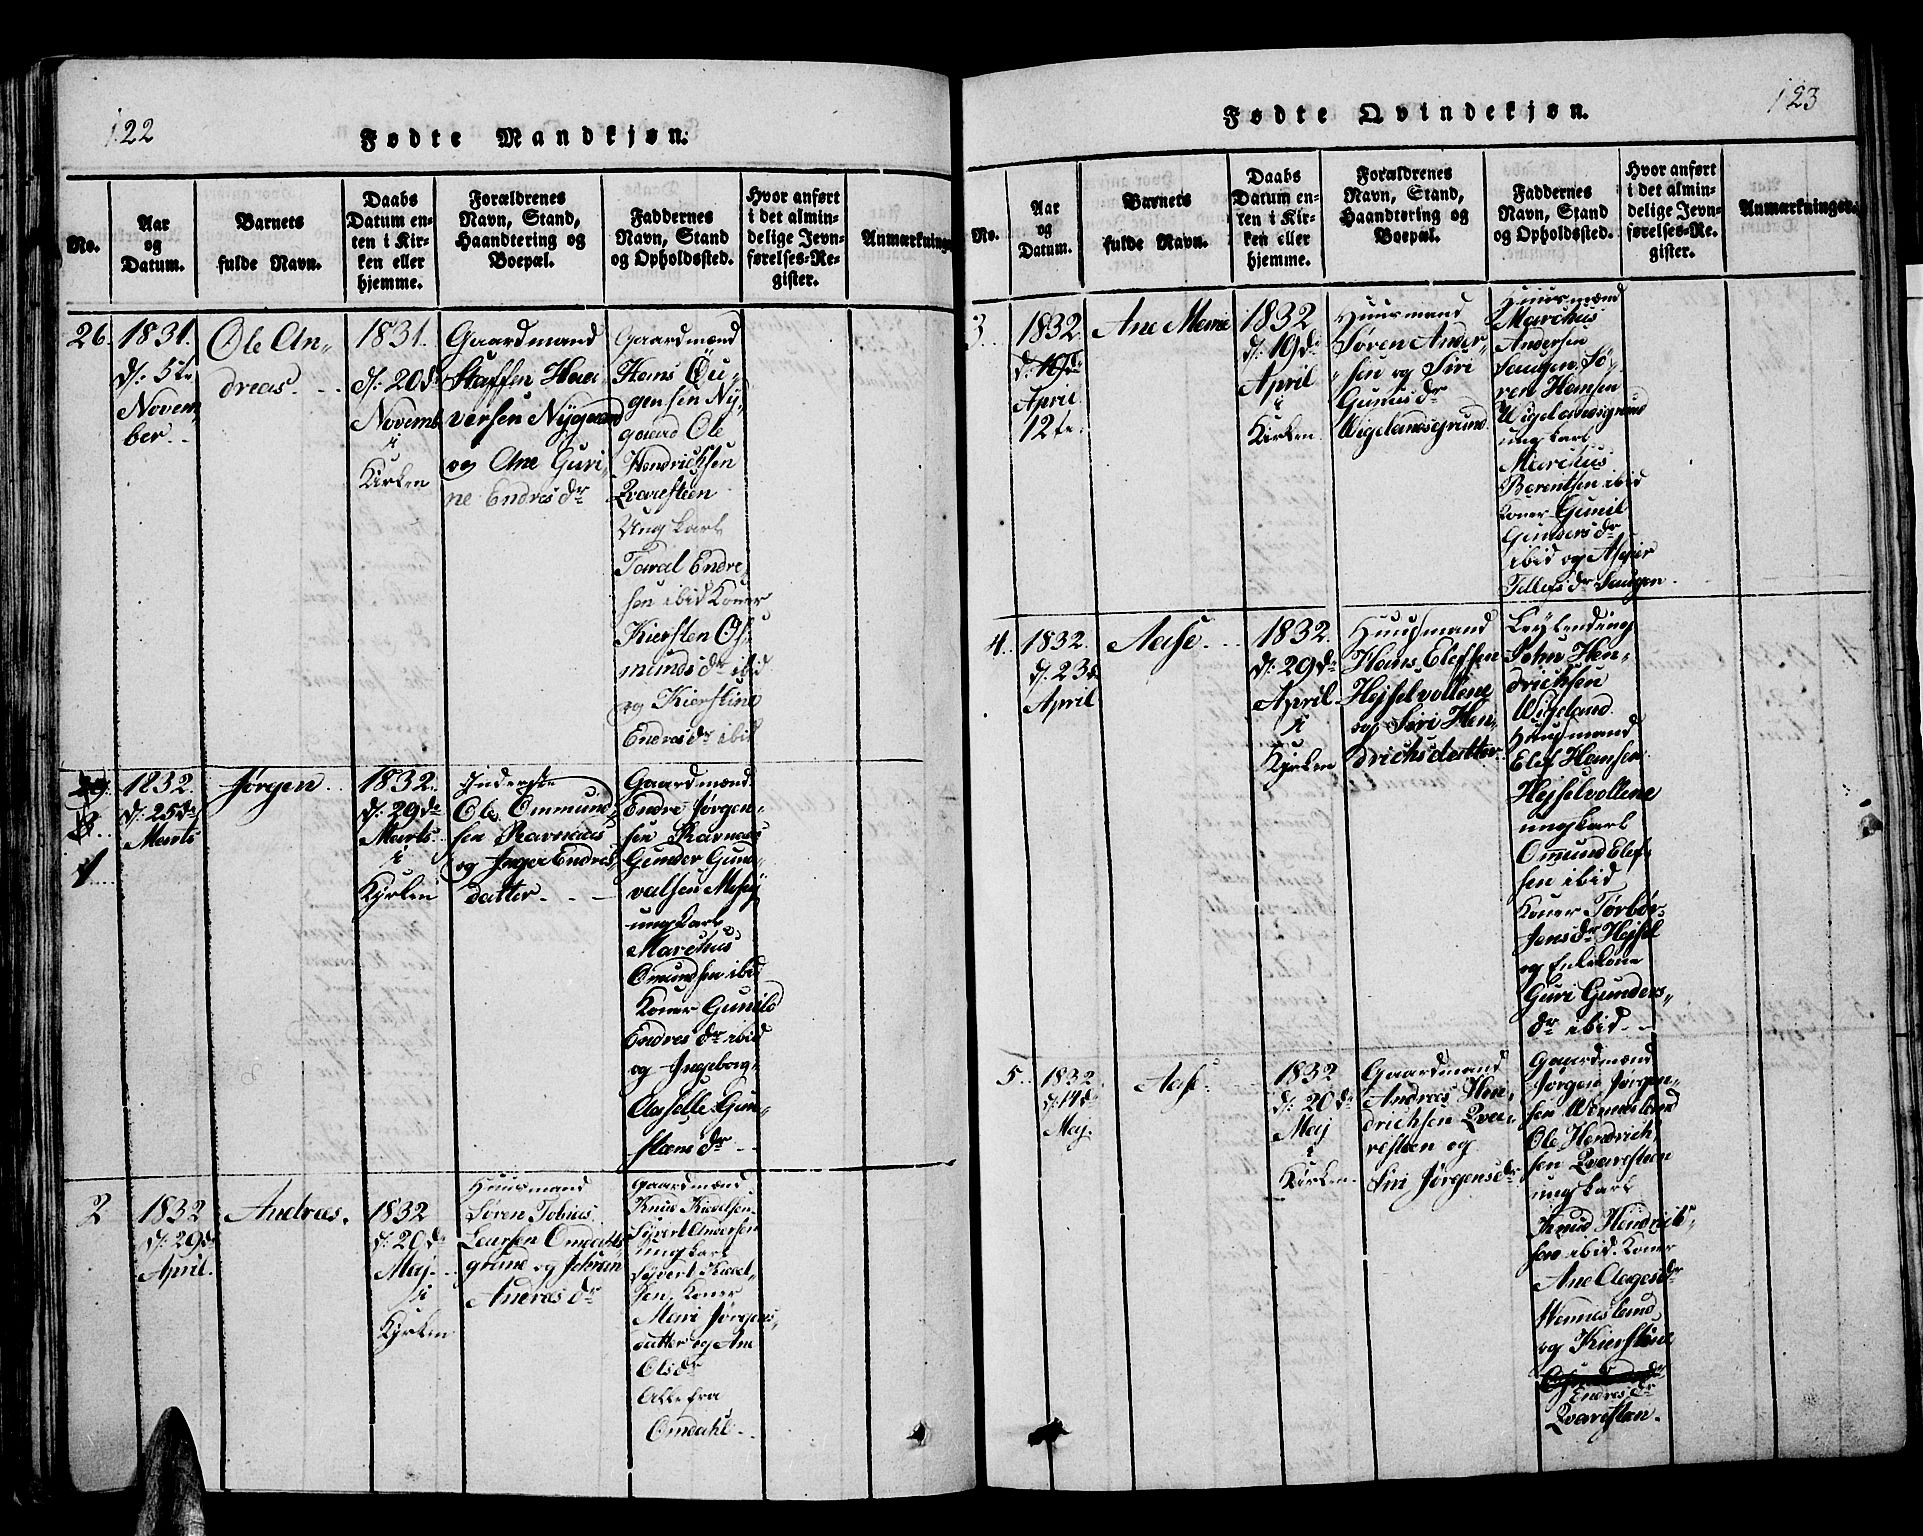 122
Fødte Mandkjøn.
No.
Aar
og
Datum.
Barnets
fulde Navn.
Daabs
Datum en-
ten i Kir-
ken eller
hjemme.
Forældrenes
Navn, Stand,
Haandtering og
Boepæl.
Faddernes
Navn, Stand
og Opholdssted.
Hvor anført
i det almin-
delige Jevn-
førelses-Re-
gister.
Anmærkninge
26.
1831.
d: 5te
Novem
ber.
Ole An-
dreas.
1831.
d: 20de
Novemb
i
Kirken
Gaardmand
Staffen Haa
versen Nygaard
og Ane Guri-
ne Endresdr
Gaardmænd
Hans
gensen Ny-
gaard Ole
Hendrichsen
Qvaresteen
Ungkarl
Tarald Endre-
sen ibid Koner
Kiersten Os-
mundsdr ibid
og Kierstine
Endresdr ibid
1
1832.
d: 25de
Marts
Jørgen.
1832.
d: 29de
Marts
i
Kirken
Inderste
Ole Ommund-
sen Ravnaas
og Inger Endres
datter
Gaardmænd
Endre Jørgen-
sen Ravnaas
Gunder Gun-
valsen
ungkarl
Marchus
Omundsen ibid
Koner Gunild
Endresdr ibid
og Ingeborg
Gun-
stensdr
2
1832
d: 29de
April.
Andreas.
1832
d: 20de
Maj.
i
Kirken
Huusmand
Søren Tobias
Laursen Omdahls
grund og
Andreasdr
Gaardmænd
Knud Kiædelsen
Syvert Andersen
ungkarl
Syvert Kiædel-
sen, Koner
Mari Jørgens
datter og Ane
Olsdr
Alle fra
Omdahl.
123
Fødte Qvindekjøn.
No.
Aar
og
Datum.
Barnets
fulde Navn.
Daabs
Datum en-
ten i Kir-
ken eller
hjemme.
Forældrenes
Navn, Stand,
Haandtering og
Boepæl.
Faddernes
Navn, Stand
og Opholdssted.
Hvor anført
i det almin-
delige Jevn-
førelses-Re-
gister.
Anmærkninger.
3.
1832.
d: 19de
April
12te.
Ane Marie
1832
d: 19de
April
i
Kirken.
Huusmand
Søren Ander-
sen og Siri
Gunusdr
Wigelandsgrund
Huusmænd
Marchus
Andersen
Saugen Sø-
ren Hansen
Wigelandsgrund
ungkarl
Marchus
Berentsen ibid
Koner Gunil
Gundersdr
ibid og Asgier
Tellefsdr Saugen.
4.
1832.
d: 23de
April
Aase.
1832.
d: 29de
April.
i
Kirken
Huusmand
Hans Elefsen
Hejselvollene
og Siri Hen-
drichsdatter
Leylending
John Hen-
drichsen
Wigeland.
Huusmand
Elef Hansen
Hejselvollene
ungkarl
Ommund Elef-
sen ibid
Koner Torbor
Jonsdr Hejsel
og Enkekone
Guri Gunders-
dr ibid
5.
1832.
d: 14de
Maj.
Aase.
1832
d: 20de
Maj
i
Kirken.
Gaardmand
Andreas Hen-
drichsen Qva-
resteen og
Siri Jørgensdr
Gaardmænd
Jørgen Jørgen-
sen Wenneslund
Ole Hendrich-
sen Qvaresteen
ungkarl
Knud Hendrich-
sen ibid. Koner
Ane Aagesdr
Wenneslund
og Kierstine
Endresdr
Qvaresteen.